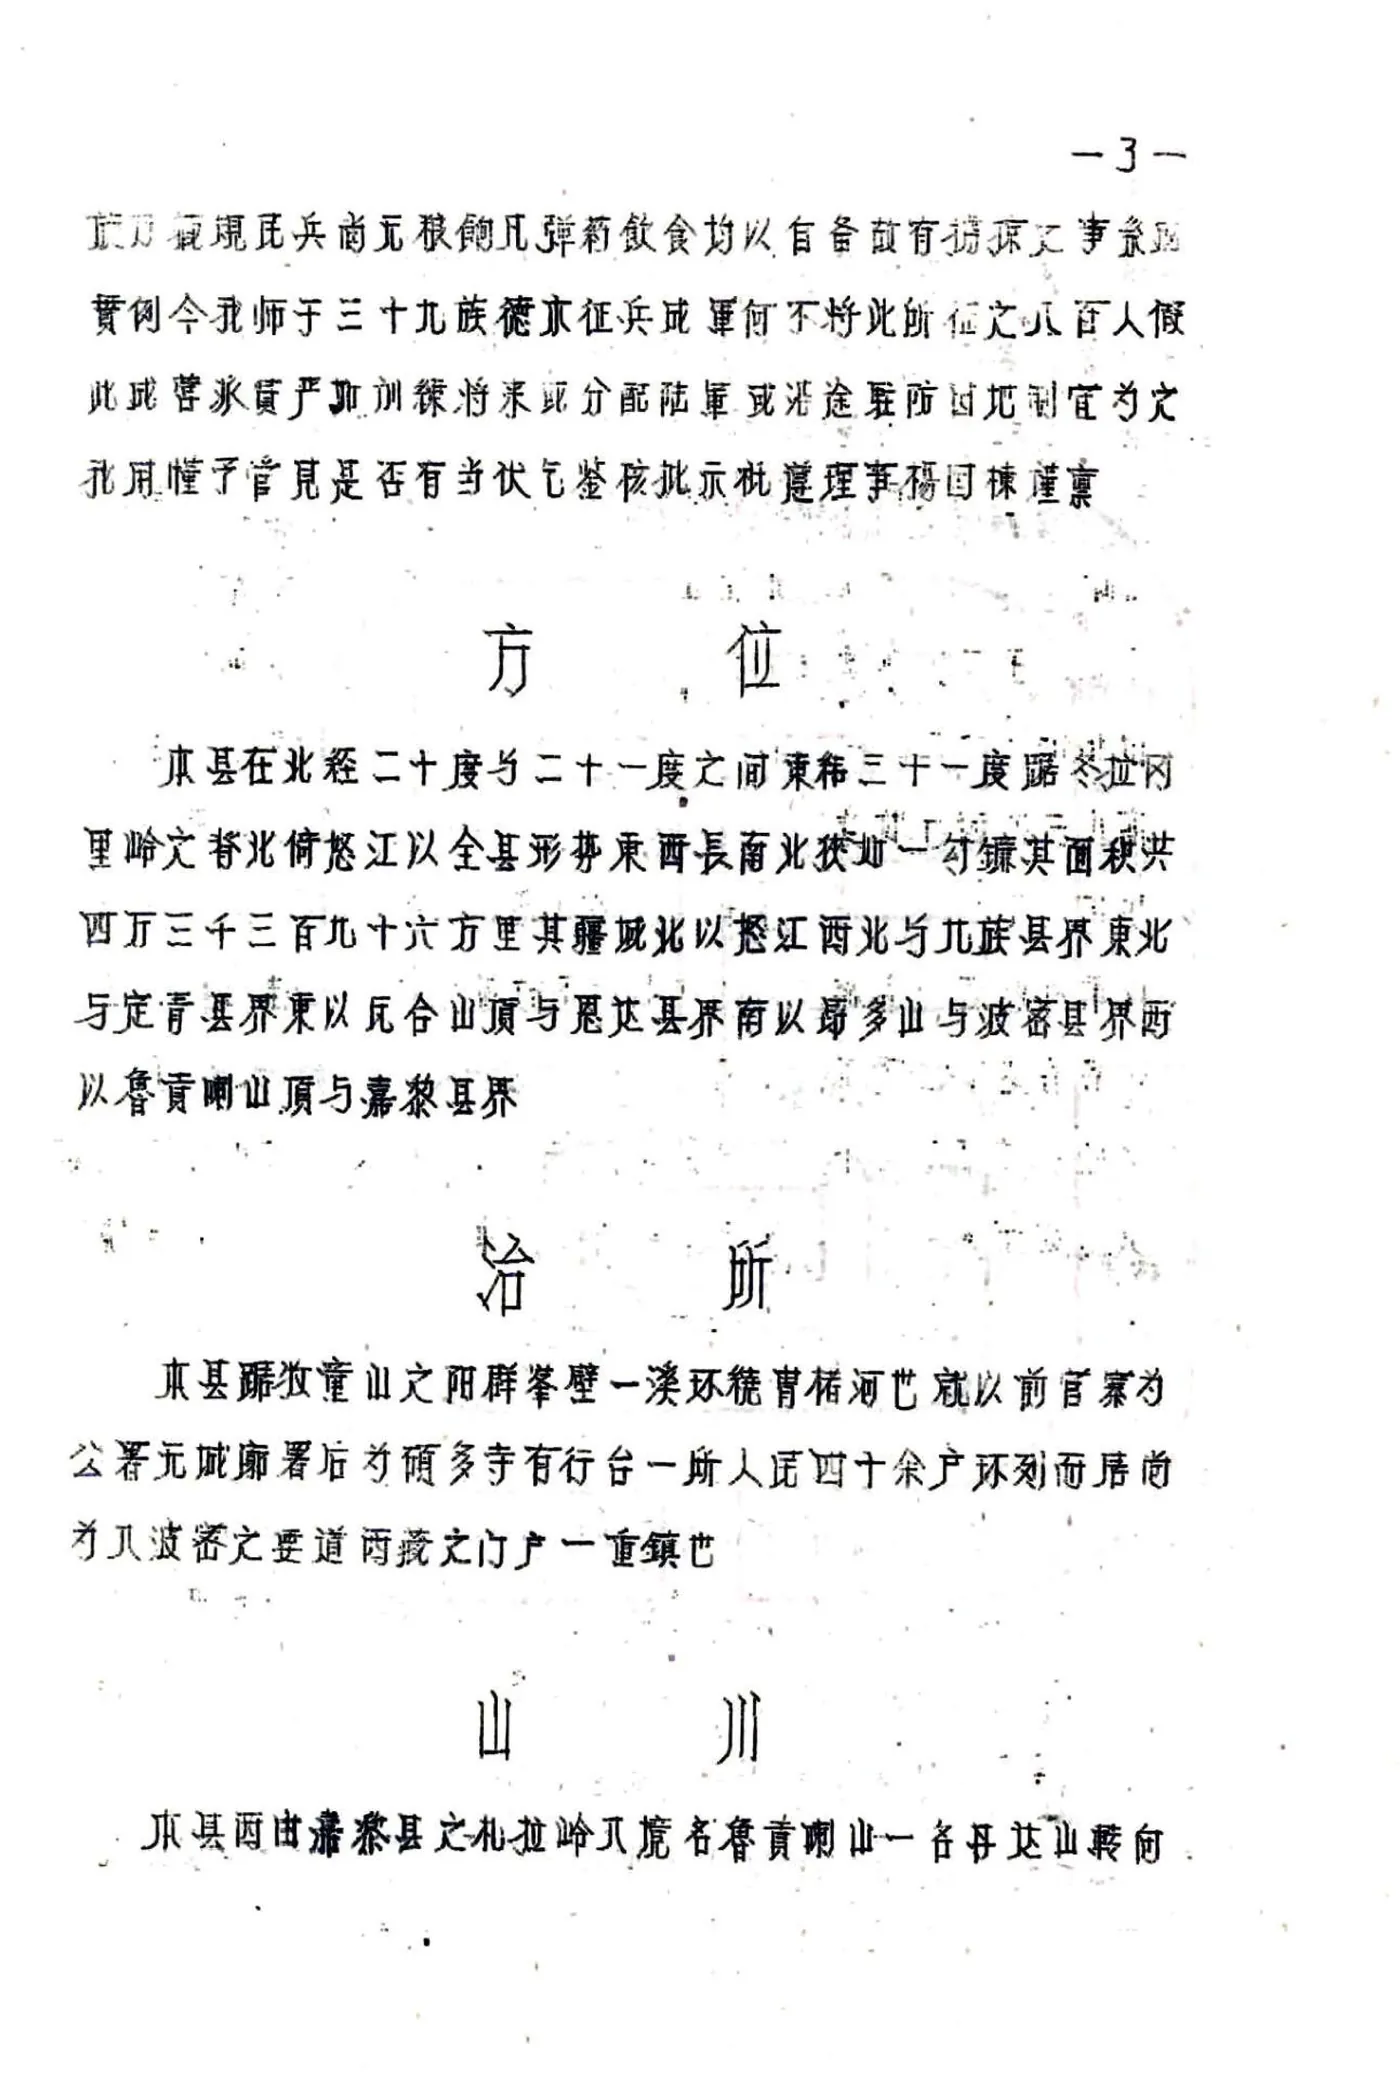 —3—
現民兵尚无粮餉凡弹药飲食均以自备故有掳掠之事系
貫例今我师于三十九族德木征兵成軍何不将此所征之八百人假
此成营派員严加训練将来或分配陆軍或沿途駐防因地制宜为之
孔用惟予官見是否有当伏乞鉴核批示枇遵理事楊囯棟謹禀
方 位
本县在北経二十度与二十一度之间東緯三十一度踞冬拉冈
里岭之脊北倚怒江以全县形势東西長南北狭如一勾鐮其面积共
四万三千三百九十六方里其疆域北以怒江西北与九族县界東北
与定青县界東以瓦合山頂与恩达县界南以昂多山与波密县界西
以魯貢喇山頂与嘉黎县界
治 所
本县踞牧童山之阳群峯壁一溪环繞曹楮河也就以前官寨为
公署无城廓署后为碩多寺有行台一所人民四十余户环列而居尚
为入波密之要道西藏之门户一重鎮也
山 川
本县西由嘉黎县之札拉岭入境名魯貢喇山一名丹达山轉向